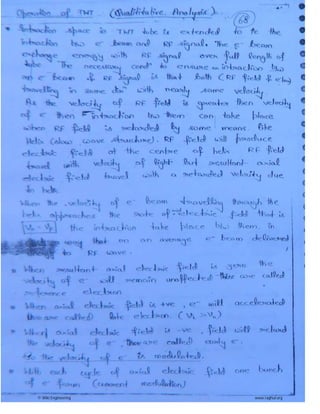 Operation of TWT (Qualitative Analysis)
68
Interaction space in TWT tube is extended to the
interaction b/w e⁻ beam and RF signal. The e⁻ beam
exchange energy with RF signal over full length of
tube. The necessary condⁿ to ensure interaction b/w
an e⁻ beam & RF signal is that both (RF field & e⁻)
travelling in same dirⁿ with nearly same velocity
As the velocity of RF field is greater than velocity
of e⁻ then interaction b/w them can take place
when RF field is retarded by some means like
Helix (slow wave structure). RF field will produce
electric field at the centre of helix RF field
travel with velocity of light but resultant axial
electric field travel with a retarded velocity due
to helix
When the velocity of e⁻ beam travelling through the
helix approaches the rate of electric field that is
the interaction take place b/w them, in
way that on an average e⁻ beam delivered
to RF wave.
When resultant axial electric field is zero the
velocity of e⁻ will remain unaffected these are called
reference electron
When axial electric field is +ve, e⁻ will accelerated
these are called late electron.
When axial electric field is -ve, field will retard
the velocity of e⁻, these are called early e⁻.
the velocity of e⁻ is modulated.
With each cycle of axial electric field one bunch
of e⁻ forms (current modulation)
© Wiki Engineering
www.raghul.org